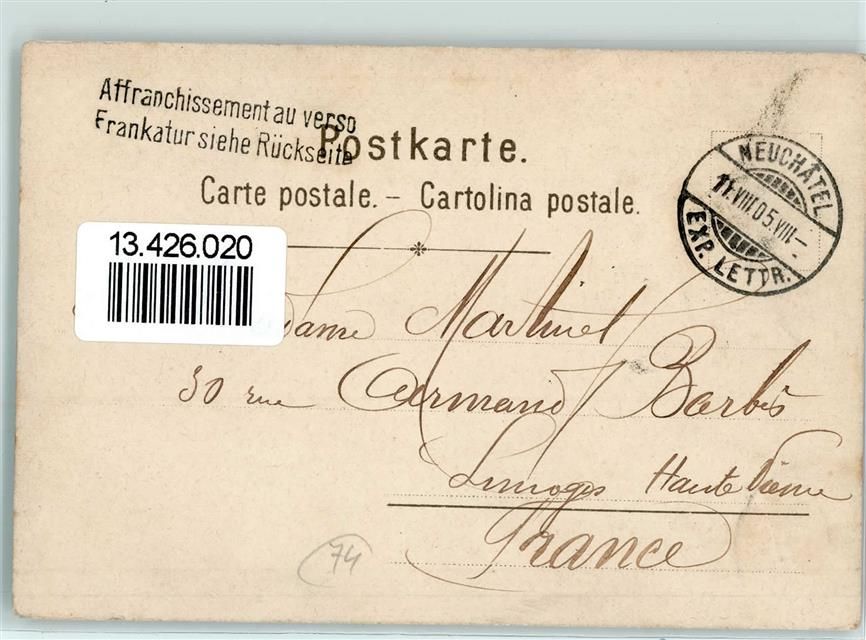 Affranchissement au verso
Frankatur siehe Rückseite
Postkarte.
Carte postale. – Cartolina postale.
NEUCHÂTEL
11.VIII.05.VIII–
EXP. LETTR.
13.426.020
dame Martinel
30 rue Armand Barbès
Limoges Haute Vienne
France
74